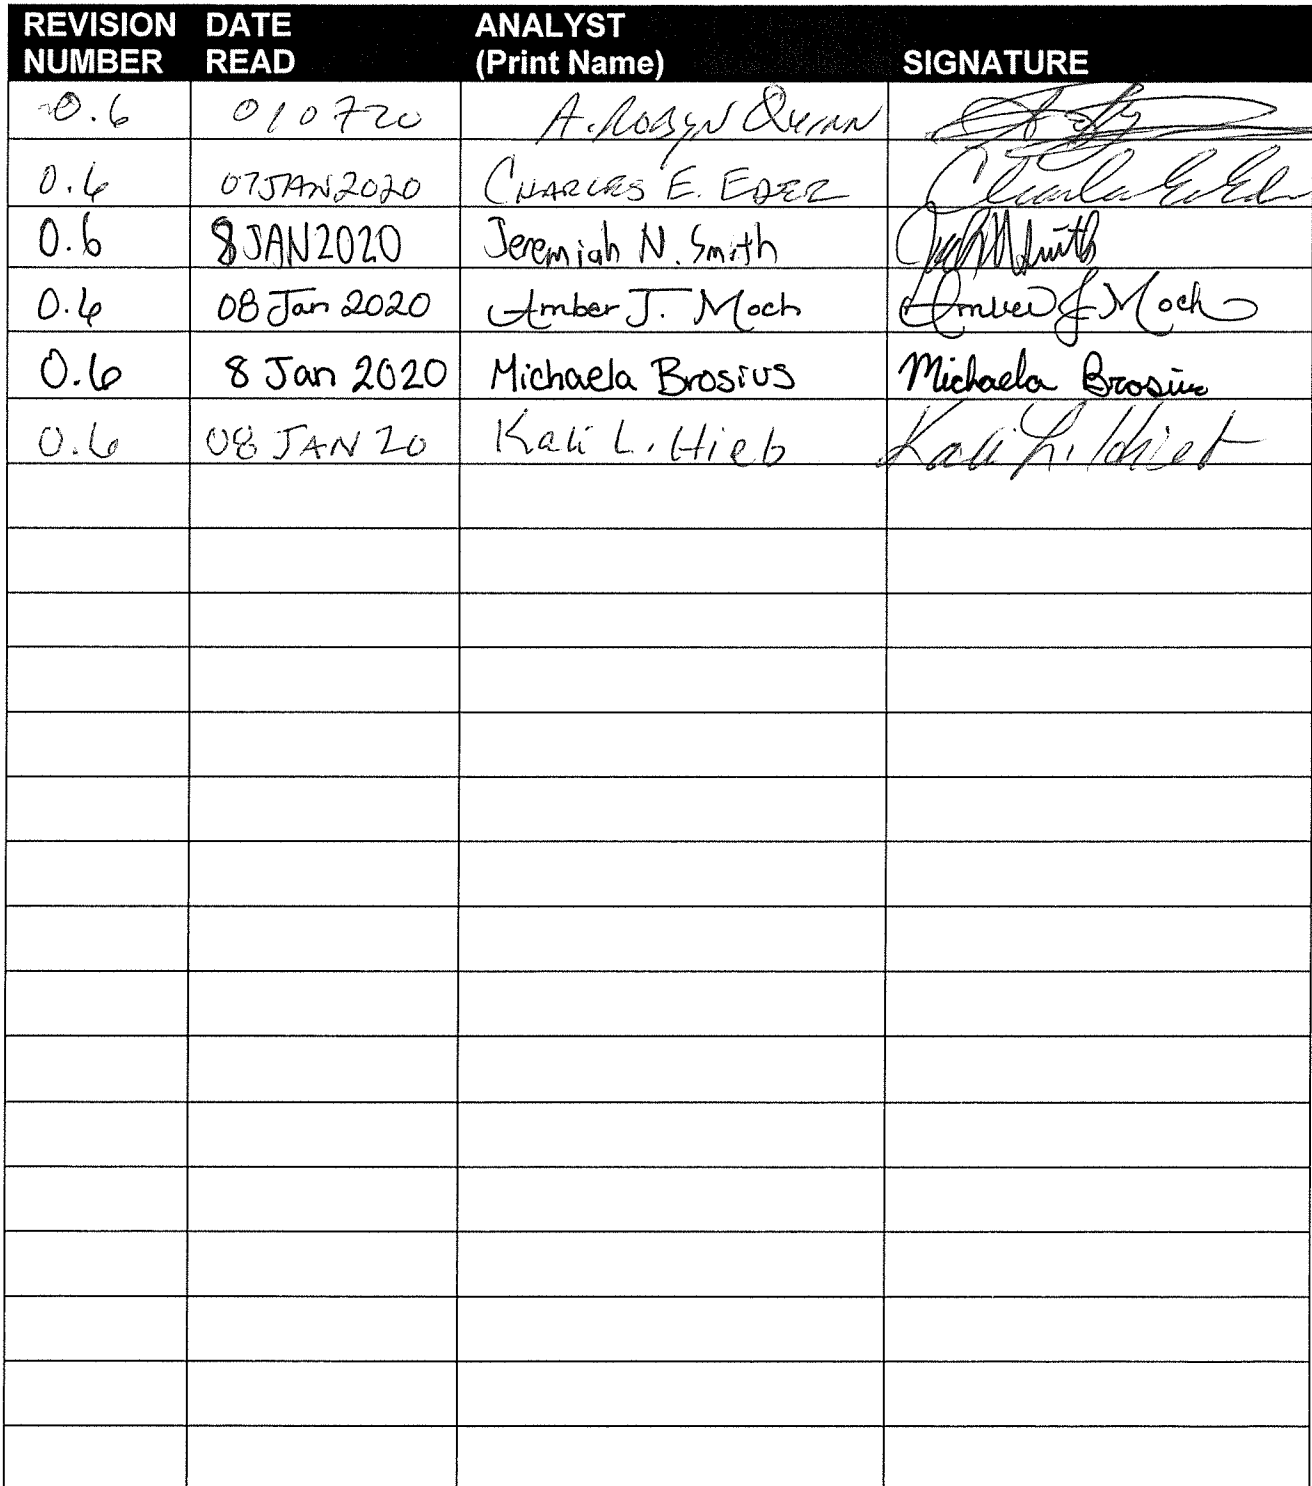 REVISION NUMBER DATE READ ANALYST (Print Name) SIGNATURE
0.6 010720 A. Robyn Quinn
0.6 07JAN2020 CHARLES E. EDER
0.6 8JAN2020 Jeremiah N. Smith
0.6 08 Jan 2020 Amber J. Moch Amber J Moch
0.6 8 Jan 2020 Michaela Brosius Michaela Brosius
0.6 08 JAN 20 Kali L. Hieb Kali L. Hieb